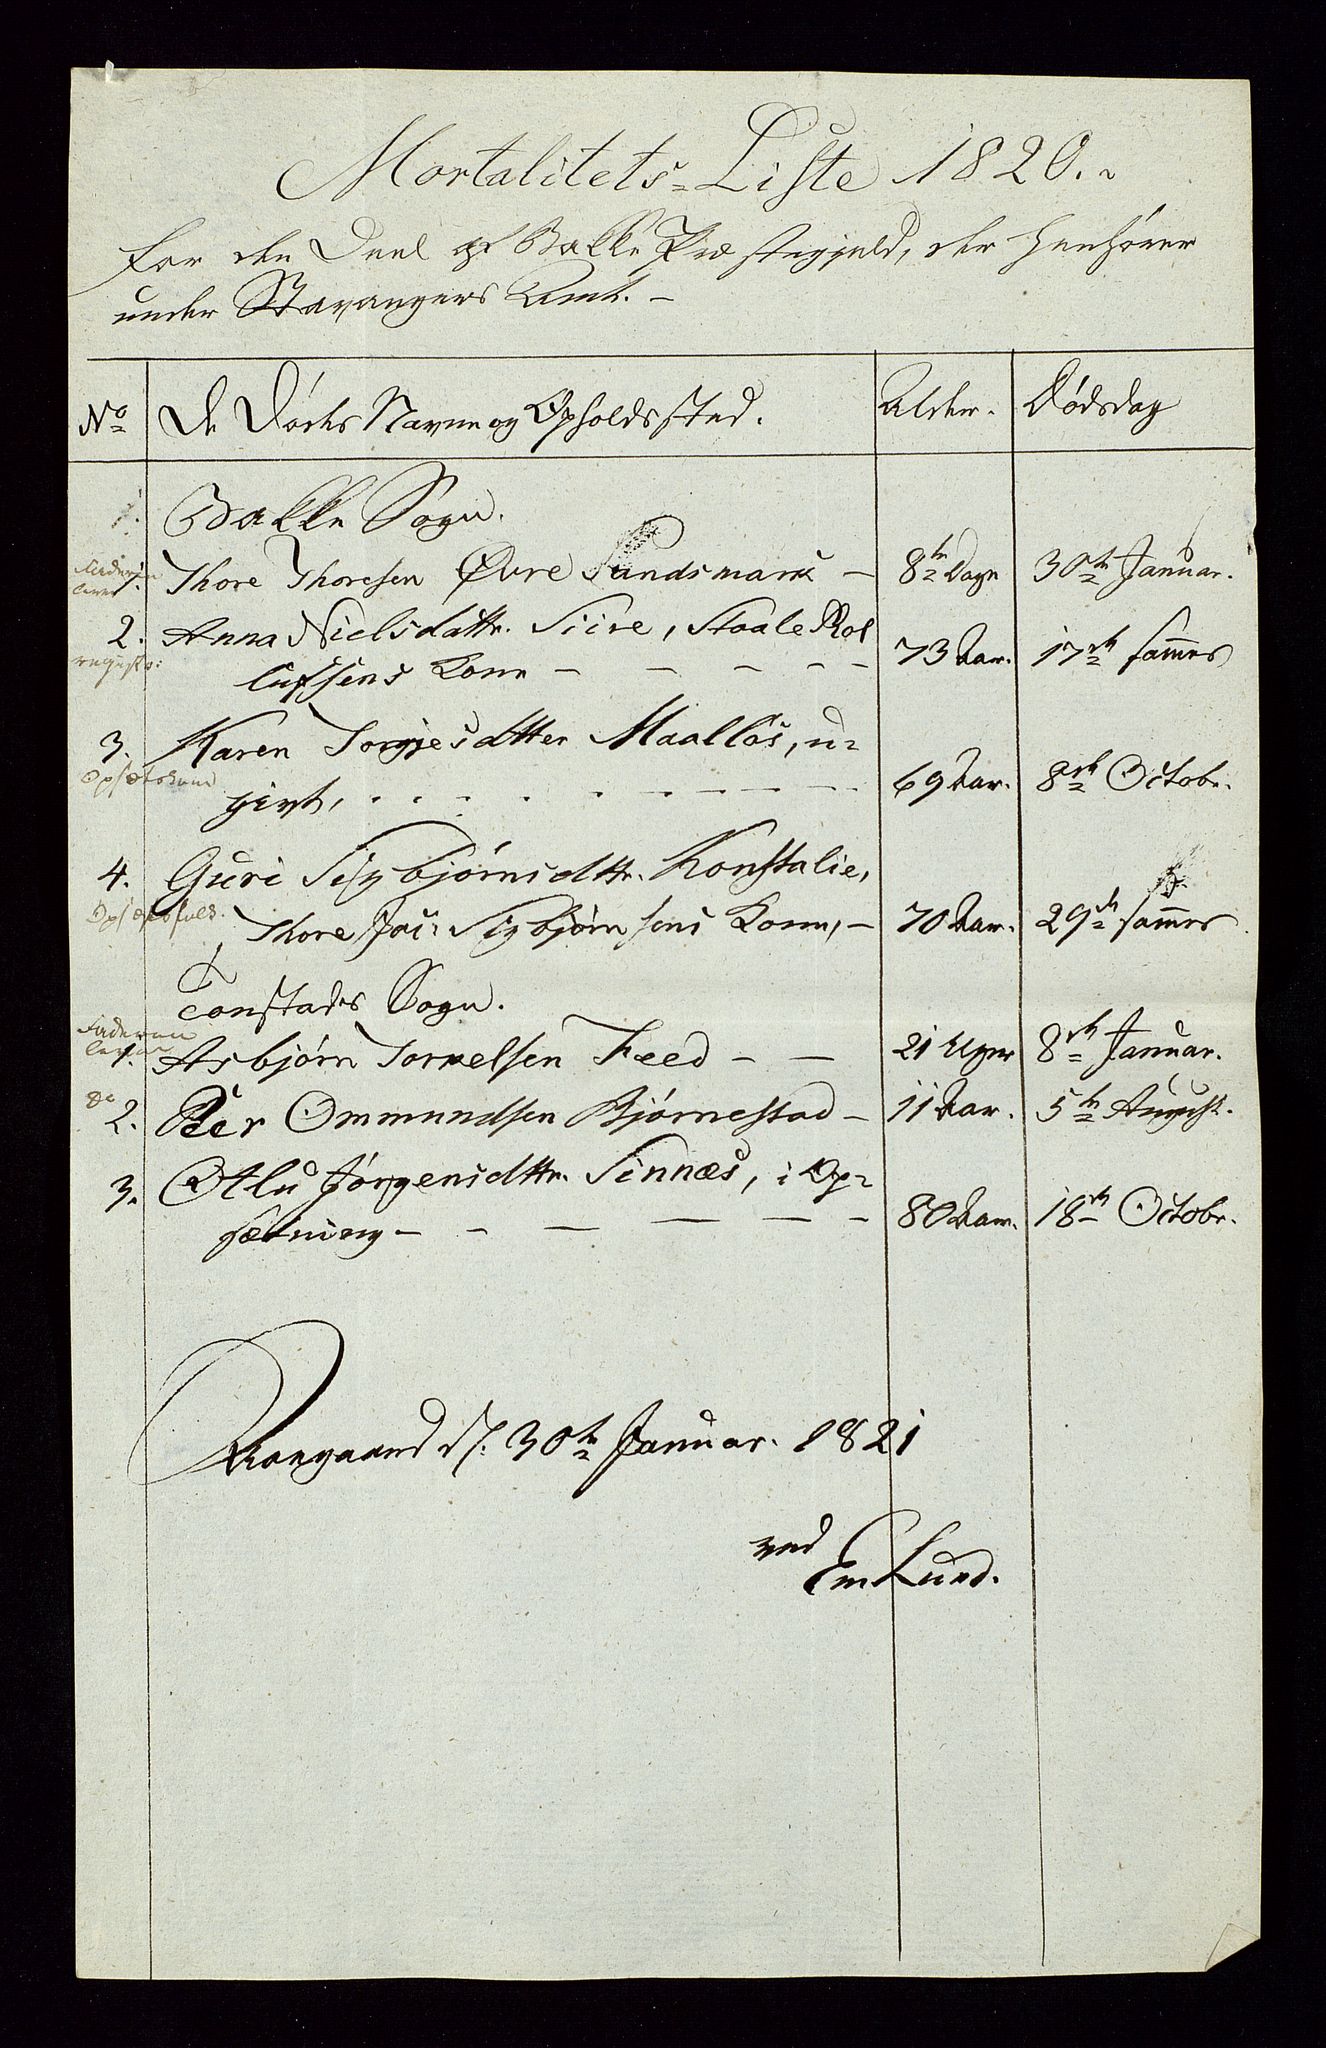 Mortalitets-Liste 1820.
for den Deel af Bakke Præstegjeld, der henhörer
under Stavangers Amt. -
No De Dödes Navne og Opholdssted. Alder. Dödsdag
1. Bakke Sogn.
Faderen
lever 1. Thore Thoresen Øvre Sandsmark - 8te Dage 30te Januar.
2. Anna Nielsdattr. Siire, Staale Rol
lufsens Kone - - - - - 73 Aar. 17de sammes
3. Karen Torgjesdtter Maalløs, u-
givt, 69 Aar. 8de Octobr.
4. Guri Sigbjörnsdttr. Konstalie,
Opsætsfolk.
Thore Sigbjörnsens Kone, - 70 Aar. 29de sammes
Tonstads Sogn.
Faderen
lever 1. Asbjörn Torkelsen Feed - - 21 Uger 8de Januar.
do 2. Peer Ommundsen Bjørnestad - 11 Aar. 5te August.
3. Otlu Jörgensdttr. Sinnæs, i Op-
sætning - - - - - - 80 Aar. 18de Octobr.
d. 30te Januar. 1821
ved
Em Lund.